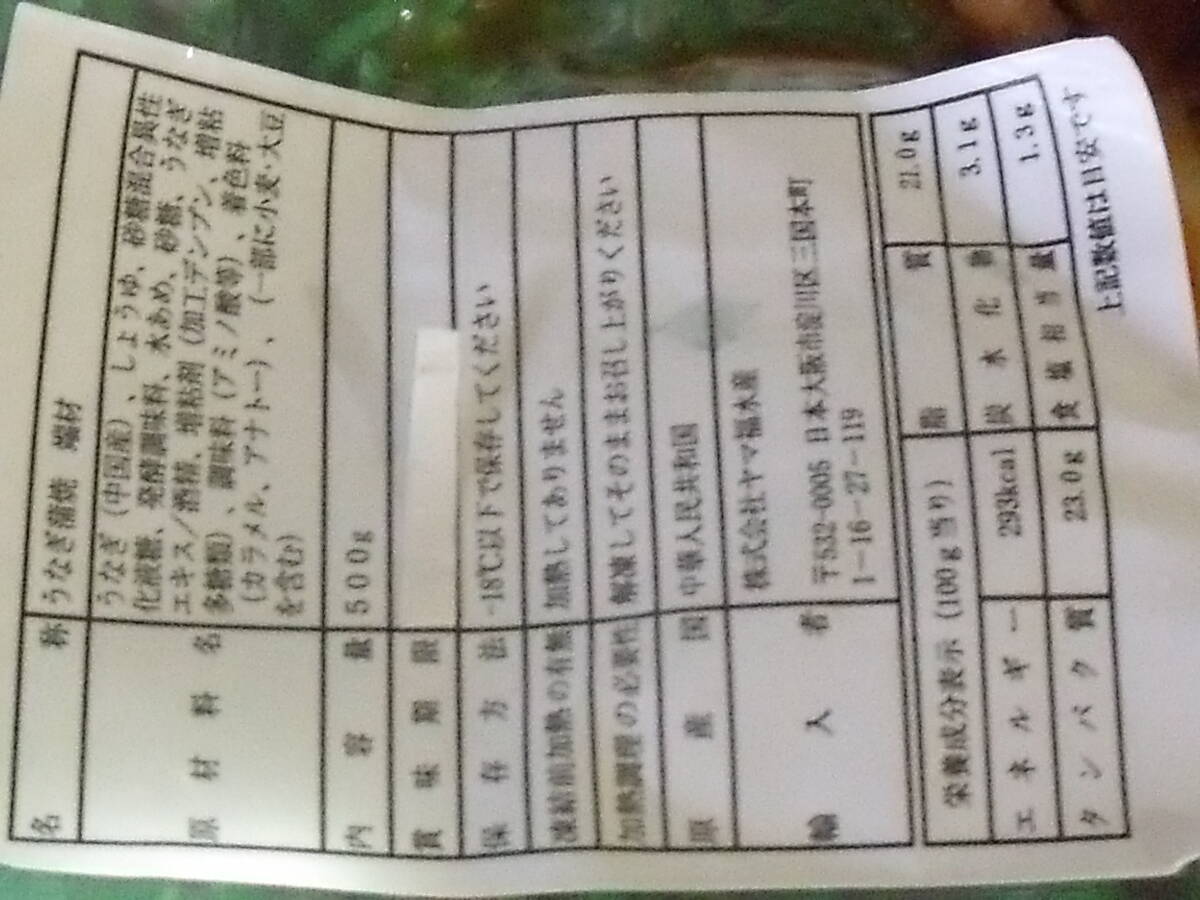 名称 うなぎ蒲焼 端材
原材料名 うなぎ（中国産）、しょうゆ、砂糖混合異性
化液糖、発酵調味料、水あめ、砂糖、うなぎ
エキス／酒精、増粘剤（加工デンプン、増粘
多糖類）、調味料（アミノ酸等）、着色料
（カラメル、アナトー）、（一部に小麦・大豆
を含む）
内容量 500g
賞味期限
保存方法 -18℃以下で保存してください
凍結前加熱の有無 加熱してありません
加熱調理の必要性 解凍してそのままお召し上がりください
原産国 中華人民共和国
輸入者 株式会社ヤマ福水産
〒532-0005 日本大阪市淀川区三国本町
1-16-27-119
栄養成分表示（100g当り） 脂質 21.0g
エネルギー 293kcal 炭水化物 3.1g
タンパク質 23.0g 食塩相当量 1.3g
上記数値は目安です